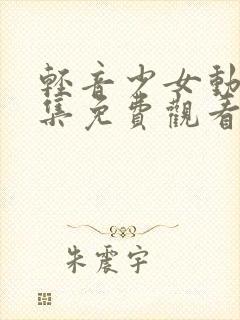 輕音少女動
集免費觀看
朱震宇